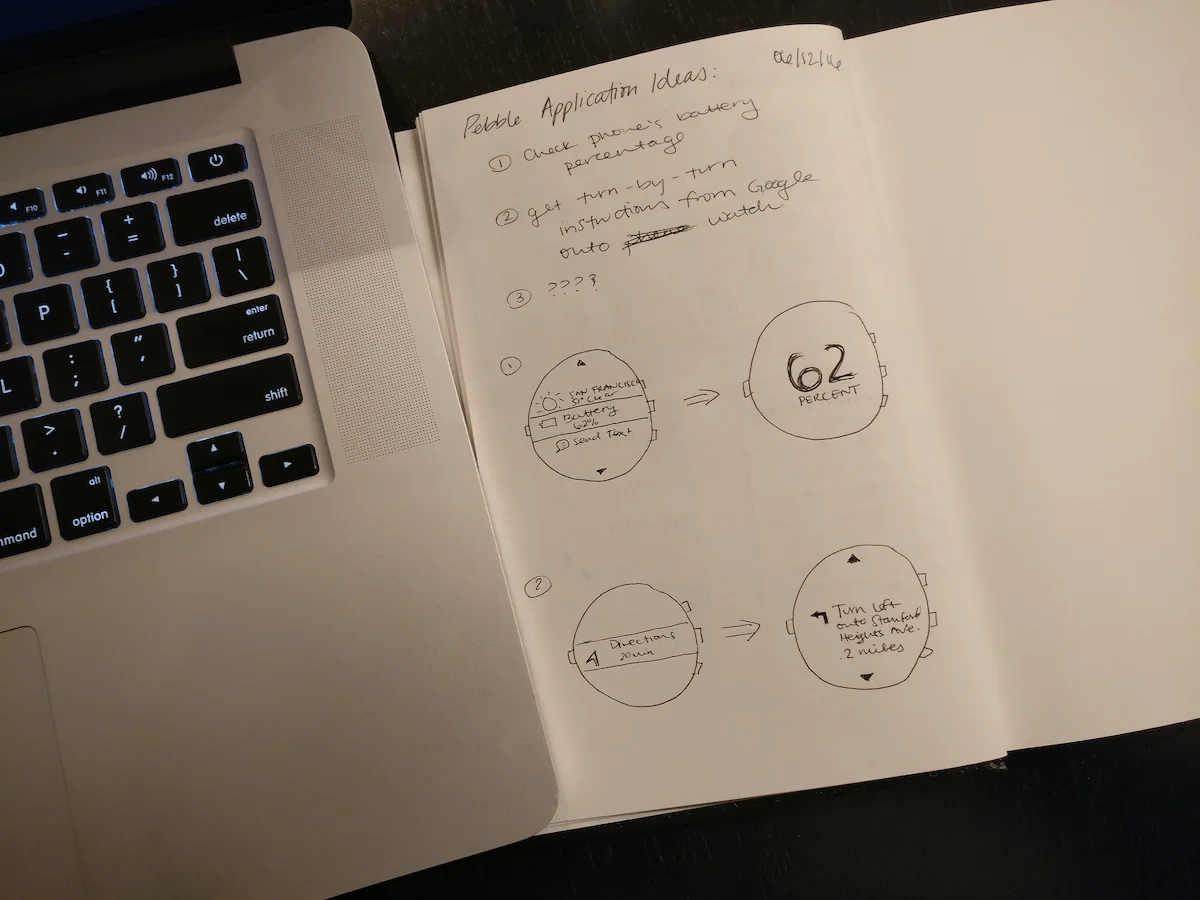 F10
F11
F12
delete
+
=
-
P
{
[
}
]
|
\
enter
return
L
:
;
"
'
shift
>
.
?
/
alt
option
mmand
Pebble Application Ideas:
06/12/16
① Check phone's battery
percentage
② get turn-by-turn
instructions from Google
onto watch
③ ????
①
SAN FRANCISCO
Clear
Battery
62%
Send Text
⇒
62
PERCENT
②
Directions
20 min
⇒
Turn left
onto Stanford
Heights Ave.
.2 miles